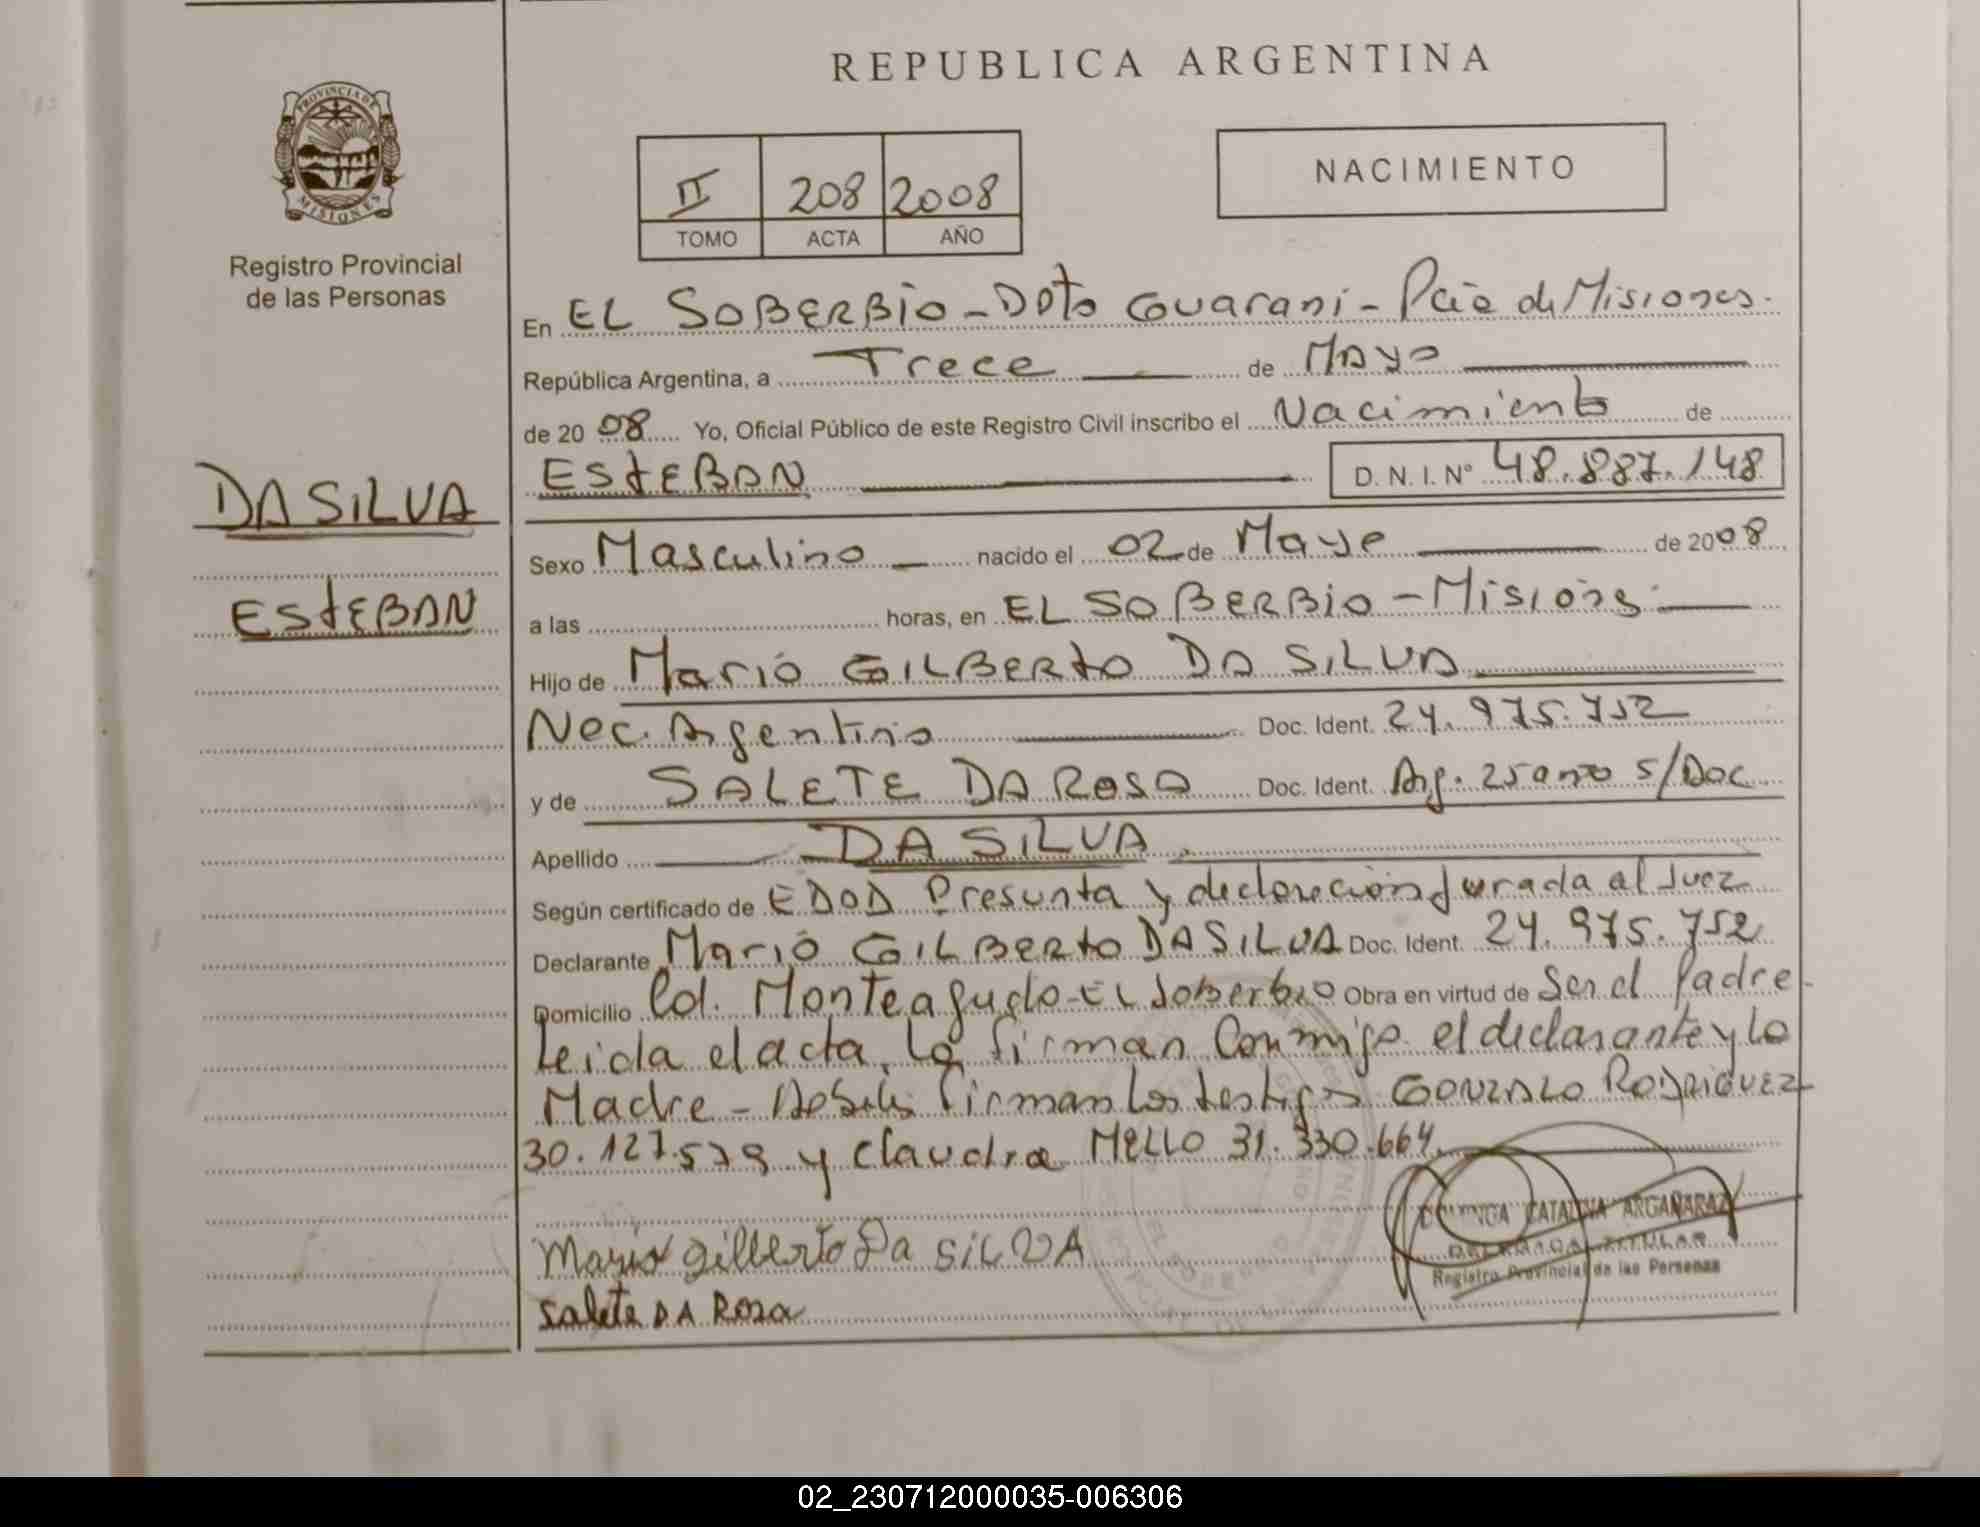 REPUBLICA ARGENTINA
PROVINCIA DE
MISIONES
Registro Provincial
de las Personas
II 208 2008
TOMO ACTA AÑO
NACIMIENTO
En EL SOBERBIO - Dpto Guarani - Pcia de Misiones.
República Argentina, a Trece de Mayo
de 2008 Yo, Oficial Público de este Registro Civil inscribo el Nacimiento de
ESTEBAN D. N. I. Nº 48.887.148
DA SILVA
ESTEBAN
Sexo Masculino nacido el 02 de Mayo de 2008
a las horas, en EL SOBERBIO - Misiones
Hijo de Mario GILBERTO DA SILVA
Nac. Argentino Doc. Ident. 24.975.752
y de SALETE DA ROSA Doc. Ident. Arg. 25 ano s/Doc
Apellido DA SILVA
Según certificado de EDAD Presunta y declaración Jurada al Juez
Declarante Mario GILBERTO DA SILVA Doc. Ident. 24.975.752
Domicilio Col. Monteagudo - EL Soberbio Obra en virtud de Ser el Padre -
Leida el acta, la firman Conmigo el declarante y la
Madre - firman los testigos GONZALO RODRIGUEZ
30.127.579 y Claudia MELLO 31.330.664.
Mario Gilberto Da SILVA
Salete DA Rosa
CATALINA ARGAÑARAZ
DELEGADA TITULAR
Registro Provincial de las Personas
02_230712000035-006306